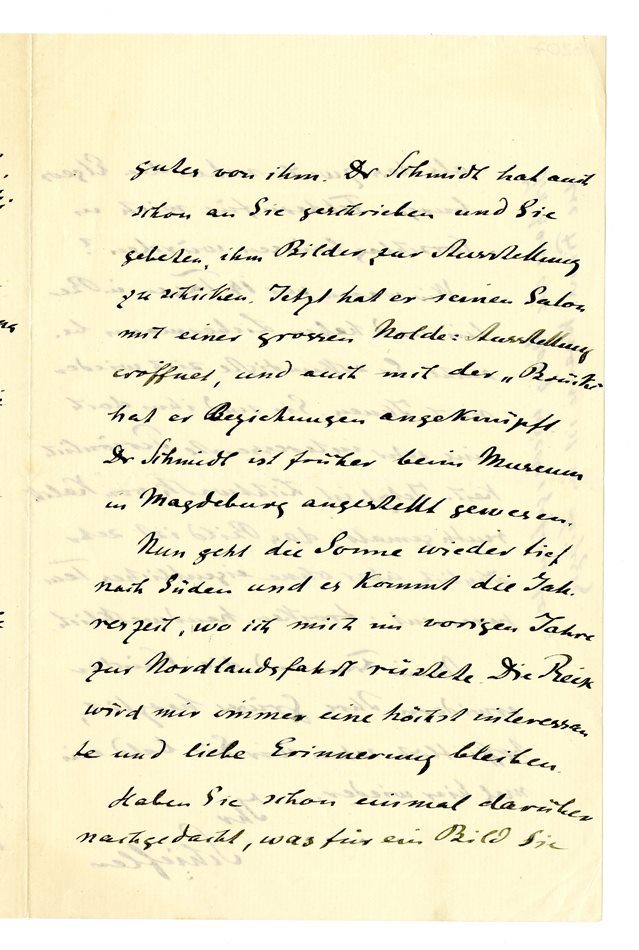 gutes von ihm. Dr Schmidt hat auch
schon an Sie geschrieben und Sie
gebeten, ihm Bilder zur Ausstellung
zu schicken. Jetzt hat er seinen Salon
mit einer grossen Nolde=Ausstellung
eröffnet, und auch mit der „Brücke"
hat er Beziehungen angeknüpft
Dr Schmidt ist früher beim Museum
in Magdeburg angestellt gewesen.
Nun geht die Sonne wieder tief
nach Süden und es kommt die Jah-
reszeit, wo ich mich im vorigen Jahre
zur Nordlandsfahrt rüstete. Die Reise
wird mir immer eine höchst interessan
te und liebe Erinnerung bleiben.
Haben Sie schon einmal darüber
nachgedacht, was für ein Bild Sie